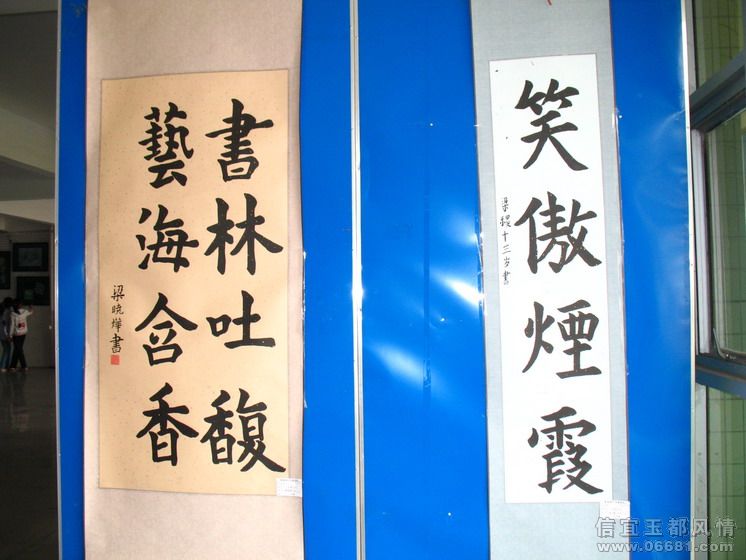 書林吐馥
藝海含香
梁曉燁書
笑傲煙霞
十三岁書
信宜玉都风情
www.06681.com